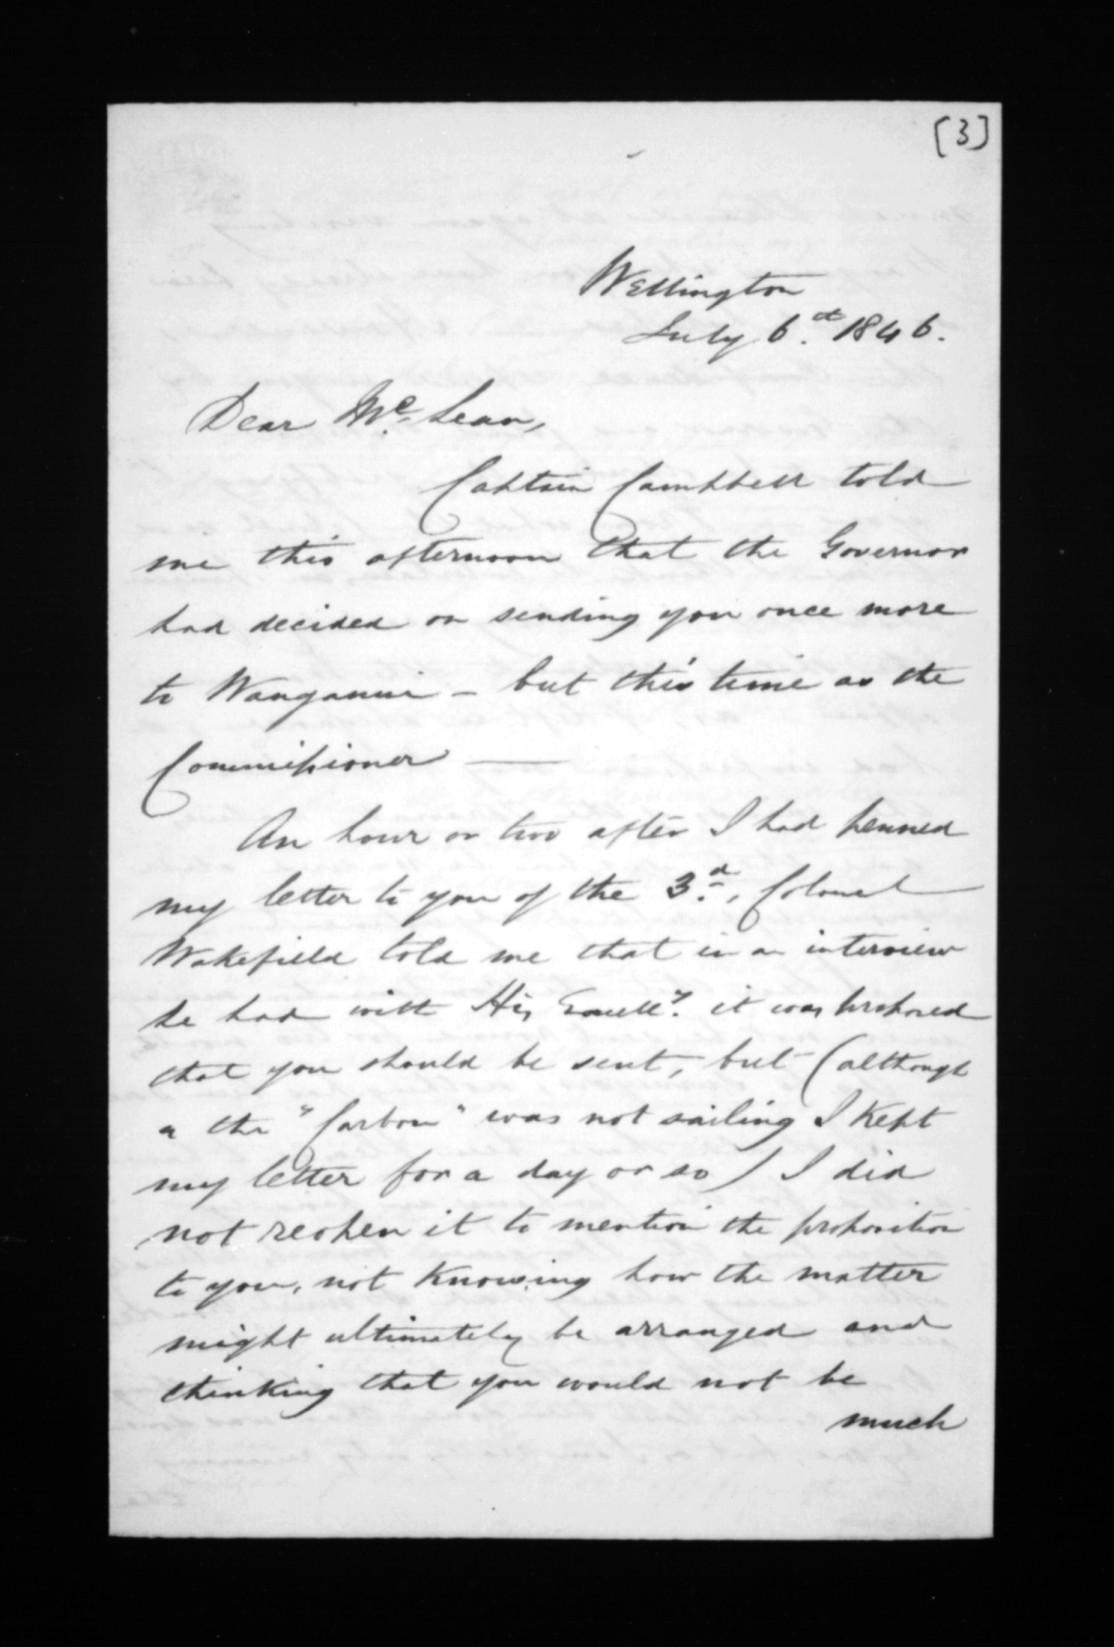 [3]
Wellington
July 6.th 1846.
Dear Mc.Lean,
Captain Campbell told
me this afternoon that the Governor
had decided on sending you once more
to Wanganui - but this time as the
Commissioner ——
An hour or two after I had penned
my letter to you of the 3.d, Colonel
Wakefield told me that in an interview
he had with His Excelly. it was proposed
that you should be sent, but (although
a the "Carbon" was not sailing I kept
my letter for a day or so) I did
not reopen it to mention the proposition
to you, not knowing how the matter
might ultimately be arranged and
thinking that you would not be
much